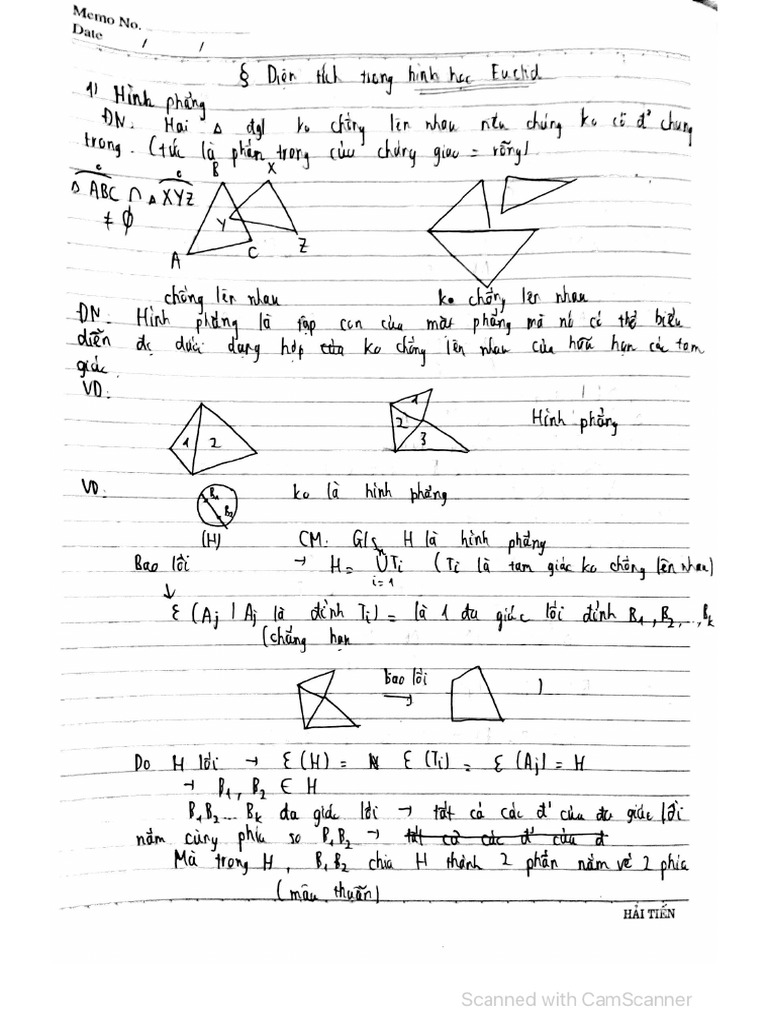 Memo No.
Date / /
§ Diện tích trong hình học Euclid
1) Hình phẳng
ĐN: Hai Δ đgl ko chồng lên nhau nếu chúng ko có đ' chung
trong. (tức là phần trong của chúng giao = rỗng)
Δ ABC ∩ Δ XYZ
≠ ∅
B X
Y
A C Z
chồng lên nhau ko chồng lên nhau
ĐN: Hình phẳng là tập con của mặt phẳng mà nó có thể biểu
diễn đc dưới dạng hợp của ko chồng lên nhau của hữu hạn các tam
giác.
VD:
1 2
1 2 3
Hình phẳng
VD: B1 B2 ko là hình phẳng
(H) CM: G/s H là hình phẳng
Bao lồi → H = n ∪ Ti i=1 (Ti là tam giác ko chồng lên nhau)
↓
Ɛ (Aj | Aj là đỉnh Ti) = là 1 đa giác lồi đỉnh B1, B2, .., Bk
(chẳng hạn
bao lồi → )
Do H lồi → Ɛ(H) = Ɛ(Ti) = Ɛ(Aj) = H
→ B1, B2 ∈ H
B1B2... Bk đa giác lồi → tất cả các đ' của đa giác lồi
nằm cùng phía so B1B2 → tất cả các đ' của đ
Mà trong H, B1B2 chia H thành 2 phần nằm về 2 phía
(mâu thuẫn)
HẢI TIẾN
Scanned with CamScanner